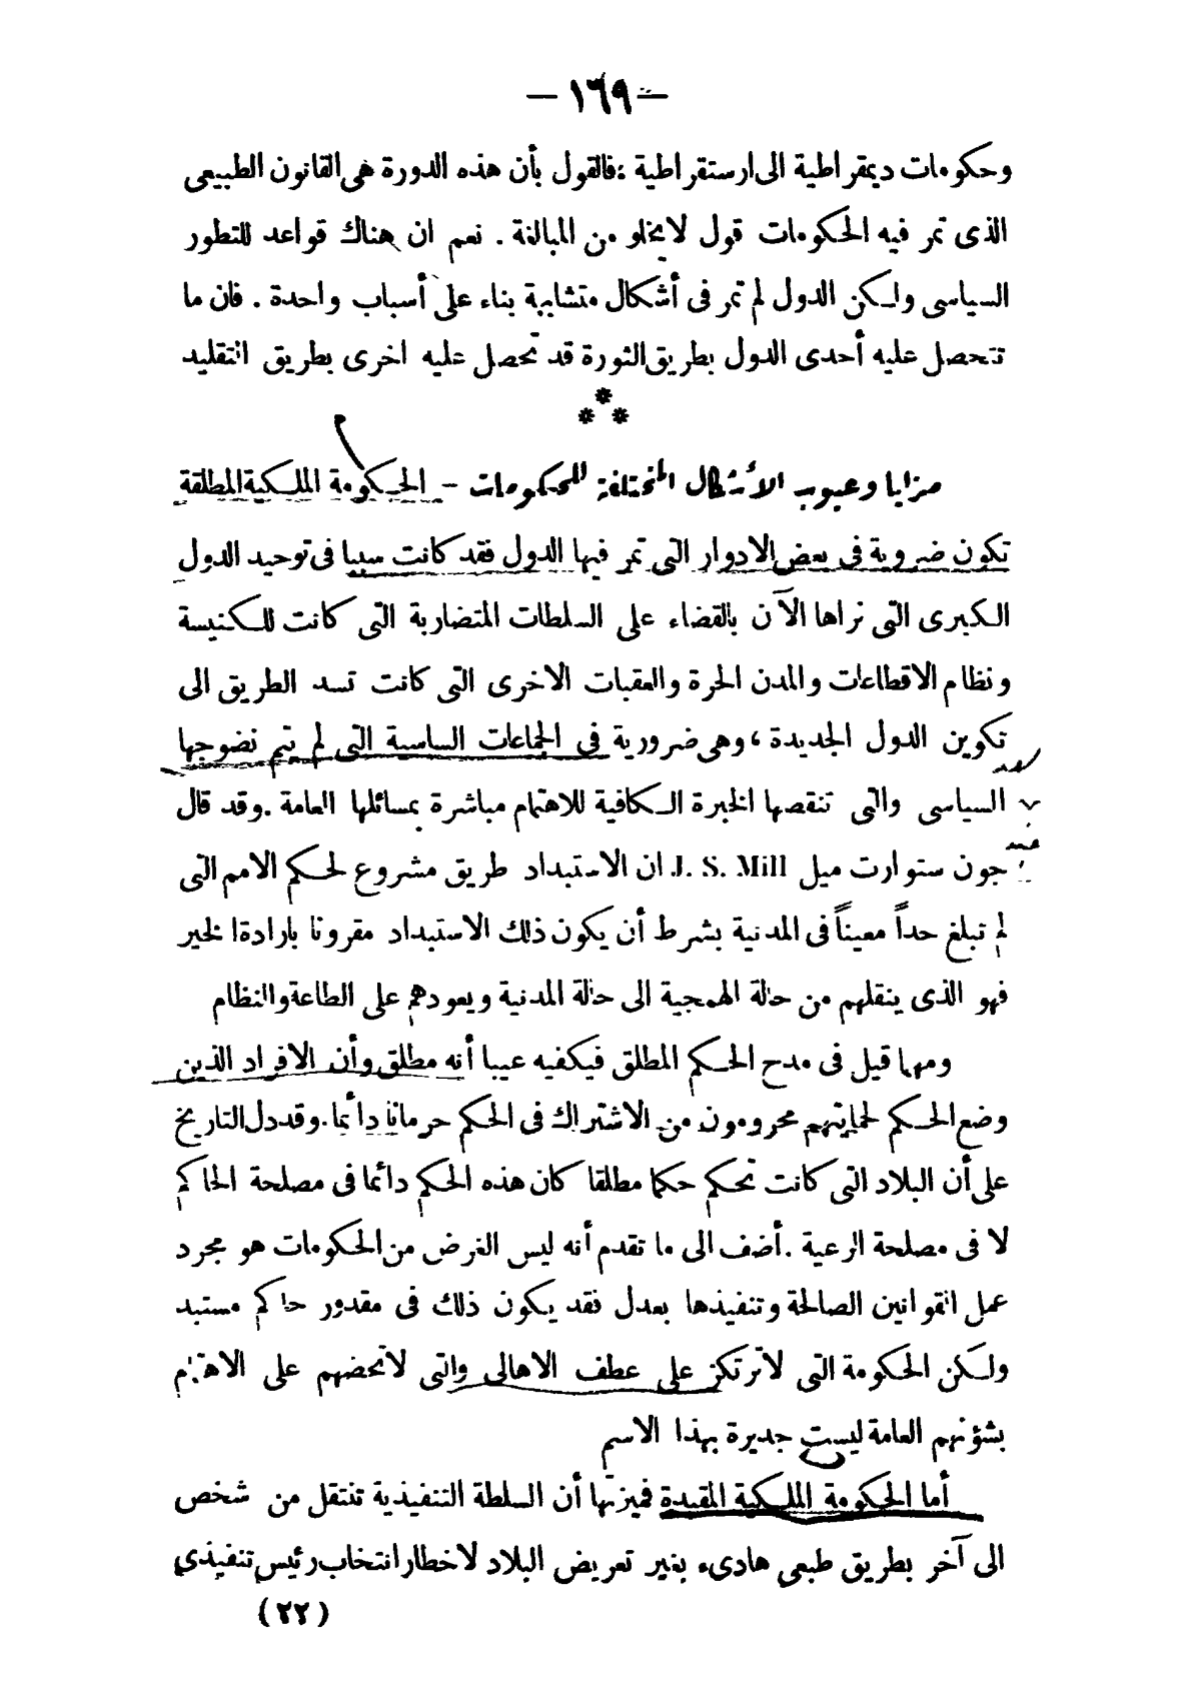 — ١٦٩ —
وحكومات ديمقراطية الى ارستقراطية ؛ فالقول بأن هذه الدورة هى القانون الطبيعى
الذى تمر فيه الحكومات قول لا يخلو من المبالغة . نعم ان هناك قواعد للتطور
السياسى ولكن الدول لم تمر فى أشكال متشابهة بناء على أسباب واحدة . فان ما
تتحصل عليه أحدى الدول بطريق الثورة قد تحصل عليه اخرى بطريق التقليد
* * *
مزايا وعيوب الأشكال المختلفة للحكومات – الحكومة الملكية المطلقة
تكون ضروية فى بعض الادوار التى تمر فيها الدول فقد كانت سببا فى توحيد الدول
الكبرى التى نراها الآن بالقضاء على السلطات المتضاربة التى كانت للكنيسة
ونظام الاقطاعات والمدن الحرة والعقبات الاخرى التى كانت تسد الطريق الى
تكوين الدول الجديدة ، وهى ضرورية فى الجماعات الساسية التى لم يتم نضوجها
السياسى والتى تنقصها الخبرة الكافية للاهتمام مباشرة بمسائلها العامة . وقد قال
جون ستوارت ميل J. S. Mill ان الاستبداد طريق مشروع لحكم الامم التى
لم تبلغ حداً معيناً فى المدنية بشرط أن يكون ذلك الاستبداد مقرونا بارادة الخير
فهو الذى ينقلهم من حالة الهمجية الى حالة المدنية ويعودهم على الطاعة والنظام
ومهما قيل فى مدح الحكم المطلق فيكفيه عيبا أنه مطلق وأن الافراد الذين
وضع الحكم لحمايتهم محرومون من الاشتراك فى الحكم حرمانا دائما . وقد دل التاريخ
على أن البلاد التى كانت تحكم حكما مطلقا كان هذه الحكم دائما فى مصلحة الحاكم
لا فى مصلحة الرعية . أضف الى ما تقدم أنه ليس الغرض من الحكومات هو مجرد
عمل القوانين الصالحة وتنفيذها بعدل فقد يكون ذلك فى مقدور حاكم مستبد
ولكن الحكومة التى لا ترتكز على عطف الاهالى والتى لا تحضهم على الاهتمام
بشؤنهم العامة ليست جديرة بهذا الاسم
أما الحكومة الملكية المقيدة فميزتها أن السلطة التنفيذية تنتقل من شخص
الى آخر بطريق طبعى هادىء بغير تعريض البلاد لاخطار انتخاب رئيس تنفيذى
(٢٢)